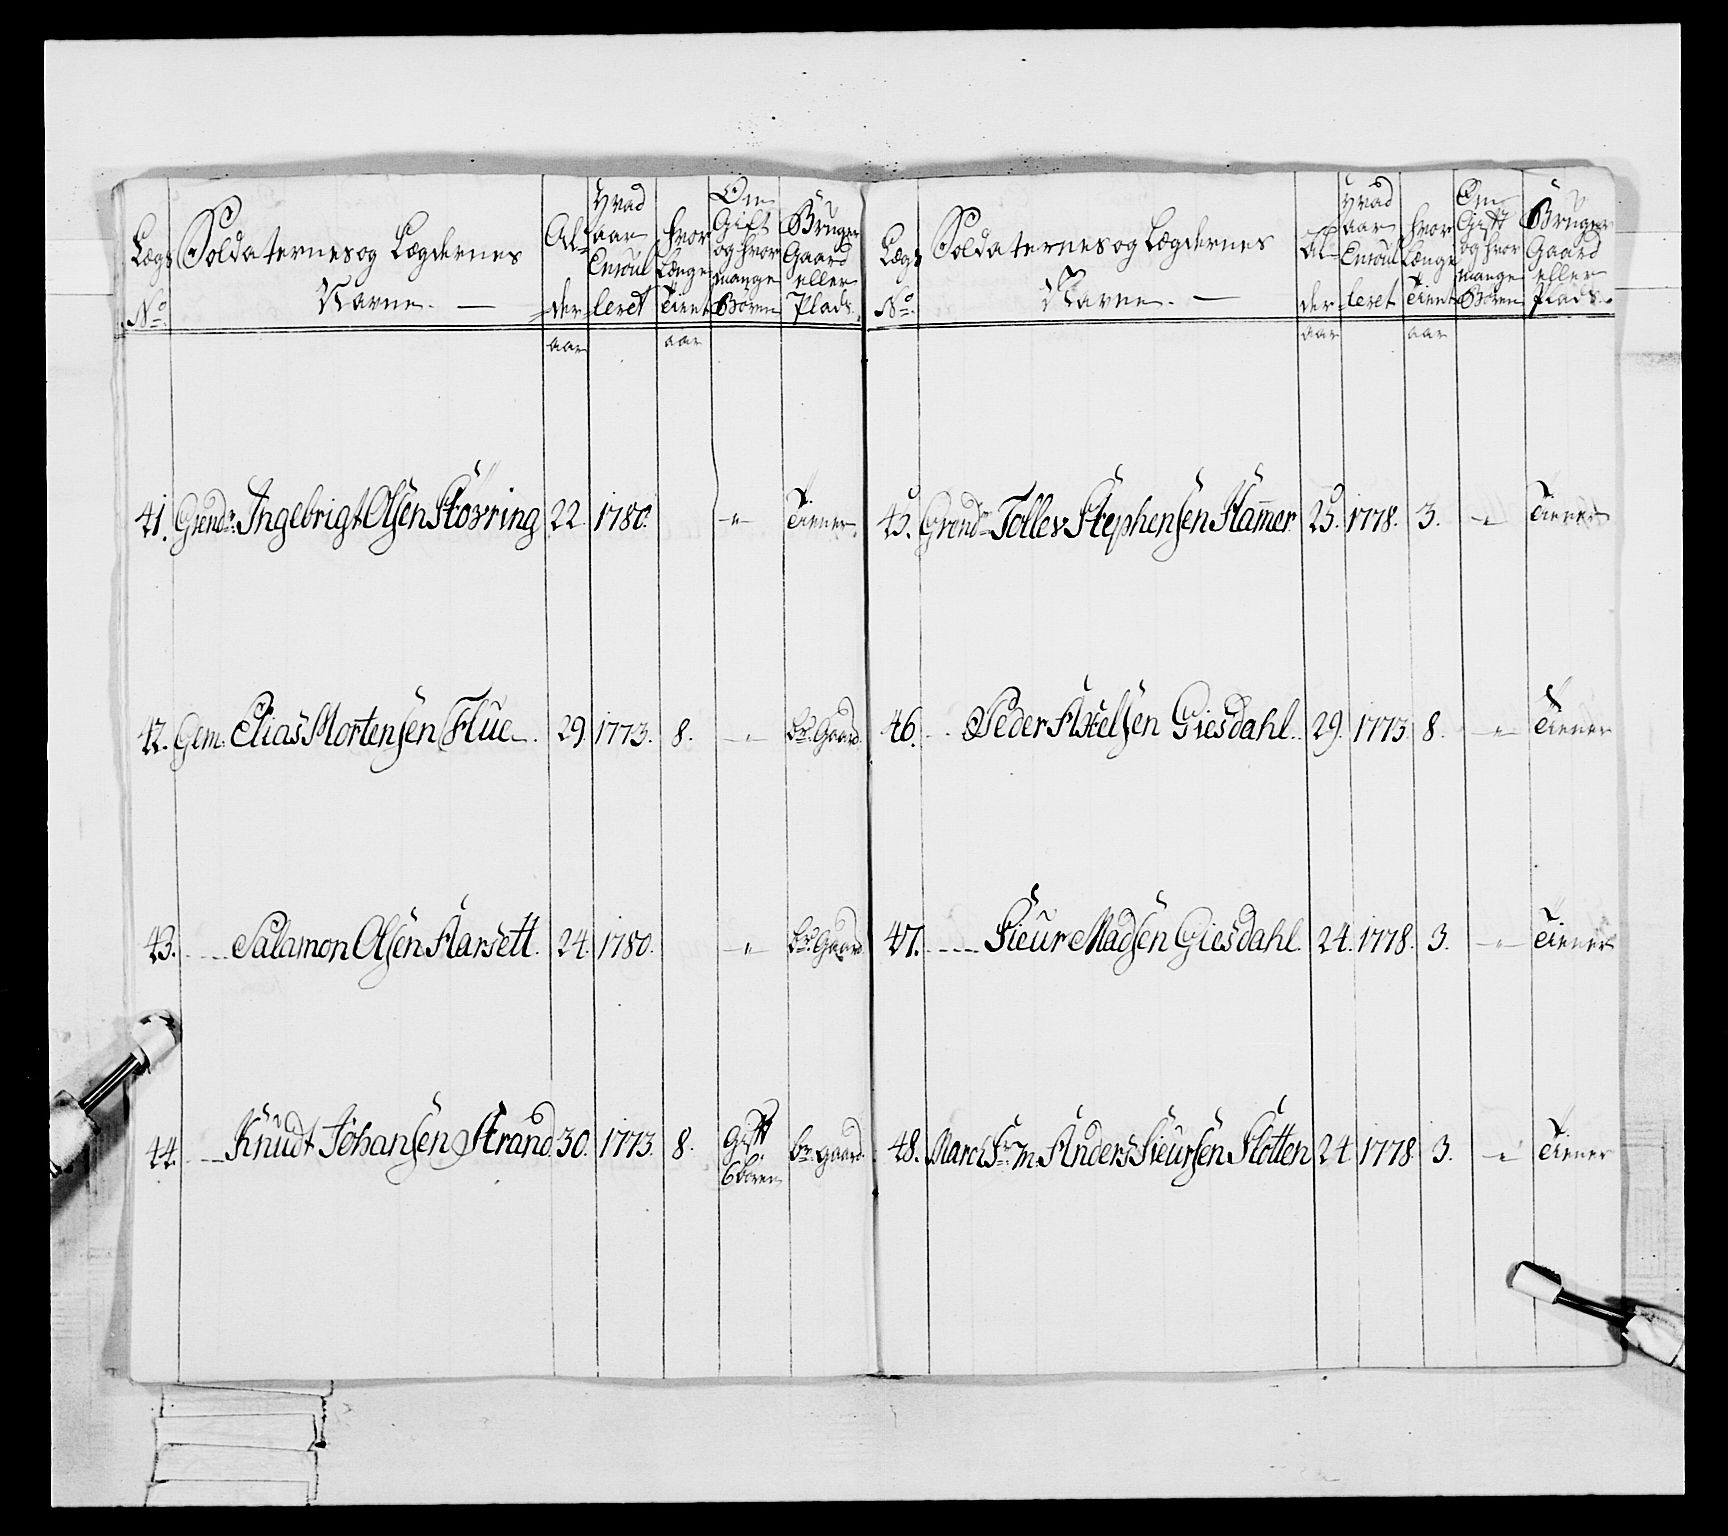 Lægs No. Soldaternes og Lægdernes Navne. — Al- der Hvad aar Enroul leret hvor Længe Tient Om Gift og hvor mange Børen Bruger Gaard eller Plads.
aar aar
41. Grendr. Ingebrigt Olsen Støvring 22. 1780. -"- Tiener.
42. Gem. Elias Mortensen Flue. 29. 1773. 8. -"- br. Gaard.
43. — Salamon Olsen Aarsett. 24. 1780. -"- br. Gaard.
44. — Knudt Johansen Strand 30. 1773. 8. Gift 6 børen br. gaard.
Lægs No. Soldaternes og Lægdernes Navne. — Al- der Hvad aar Enroul leret hvor Længe Tient Om Gift og hvor mange Børen Bruger Gaard eller Plads.
aar aar
45. Grendr. Tollev Stephensen Hamer. 25. 1778. 3. -"- Tiener
46. — Peder Axelsen Giesdahl. 29. 1773. 8. -"- Tiener
47. — Sieur Madsen Giesdahl 24. 1778. 3. -"- Tiener
48. Anders Sieursen Slotten 24 1778 3. -"- Tiener